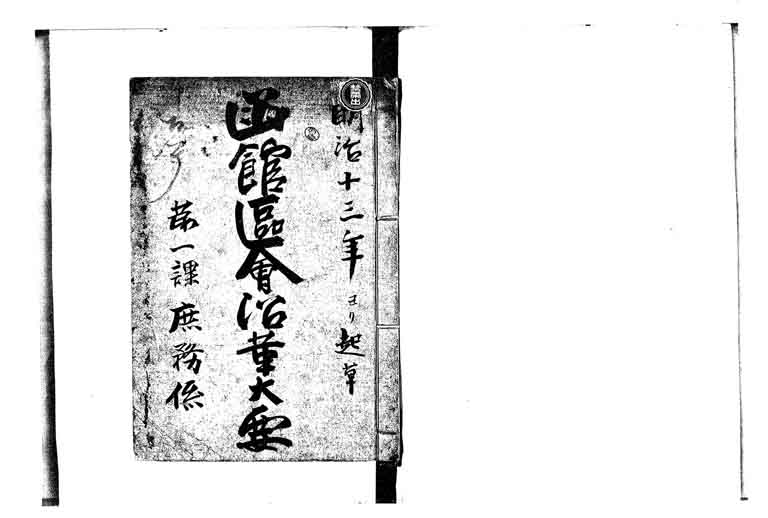 明治十三年ヨリ起草
函館區會沿革大要
第一課庶務係
禁帯出